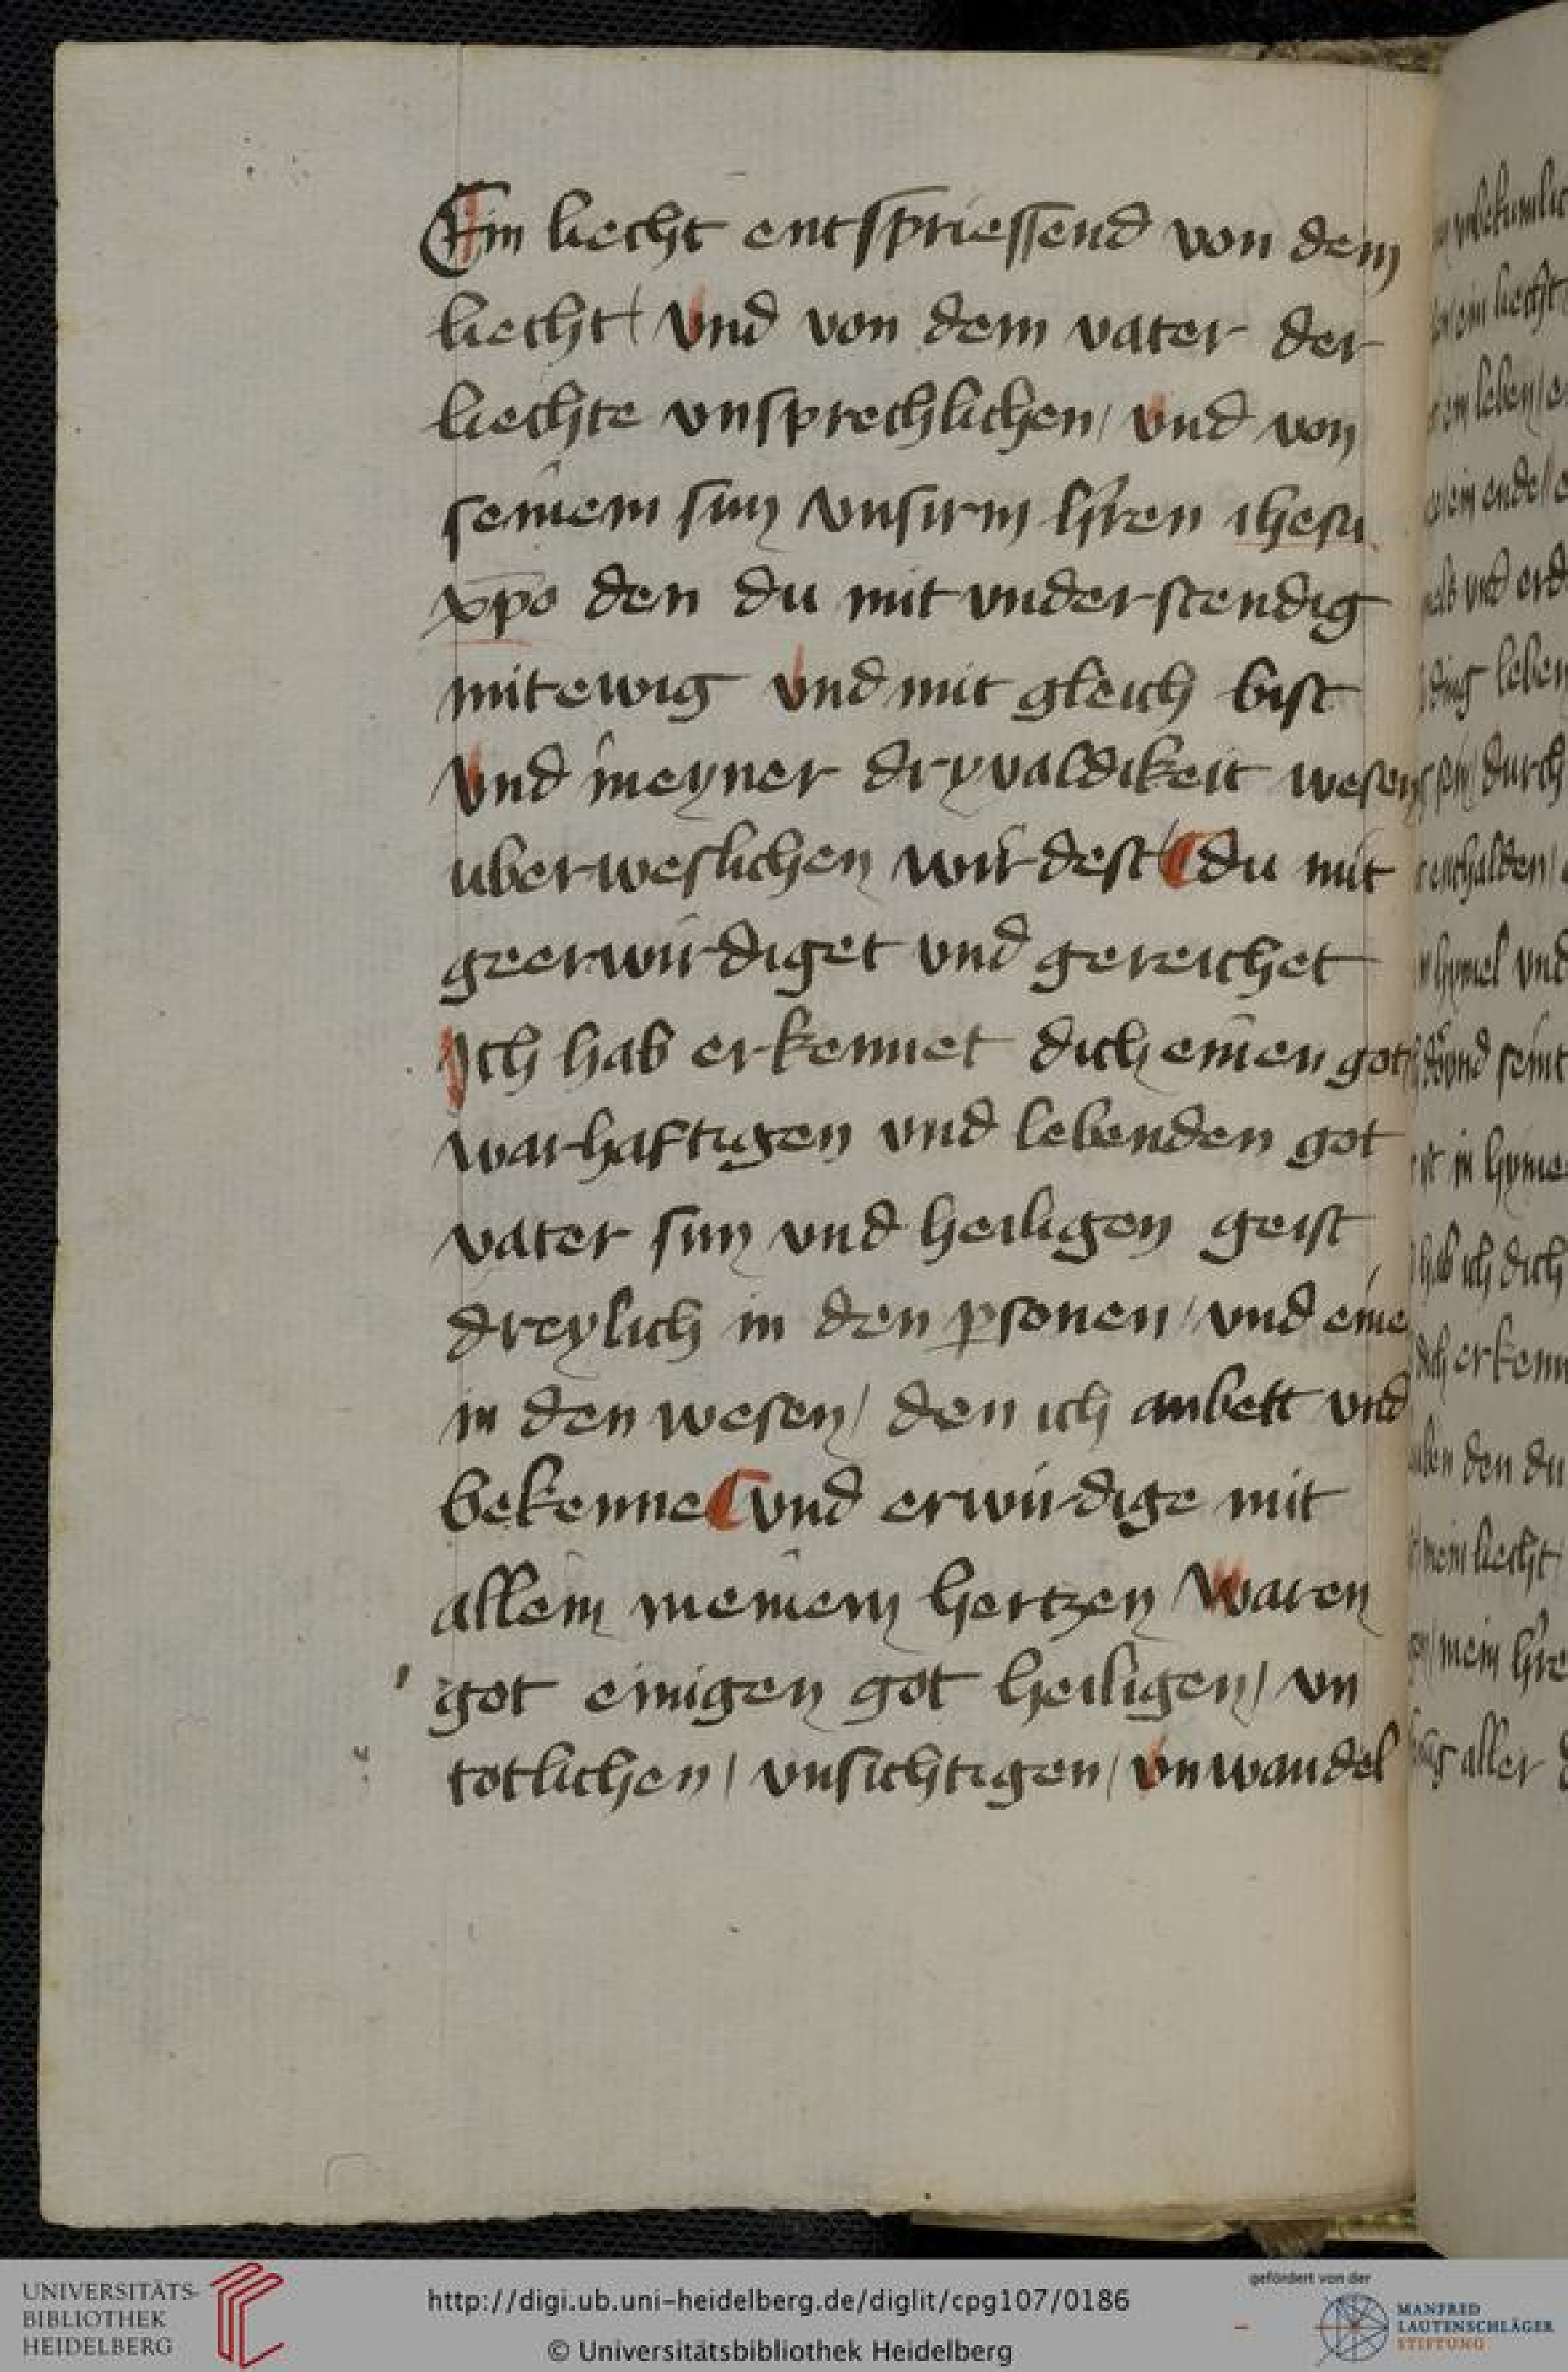 Ein liecht entspriessend von dem
liecht / vnd von dem vater der
liechte vnsprechlichen / vnd von
seinem sun vnsirm hren ihesu
xpo den du mit vnderstendig
mitewig vnd mit gleich bist
vnd in eyner dryvaldikeit wesen
uberweslichen wirdest / du mit
geerwirdiget vnd gereichet
Ich hab erkennet dich einen got /
warhaftigen vnd lebenden got
vater sun vnd heiligen geist
dreylich in den psonen / vnd eine
in den wesen / den ich anbett vnd
bekenne vnd erwirdige mit
allem meinem hertzen waren
got einigen got heiligen / vn
totlichen / vnsichtigen / vnwandel
UNIVERSITÄTS-
BIBLIOTHEK
HEIDELBERG
http://digi.ub.uni-heidelberg.de/diglit/cpg107/0186
© Universitätsbibliothek Heidelberg
gefördert von der
MANFRED
LAUTENSCHLÄGER
STIFTUNG